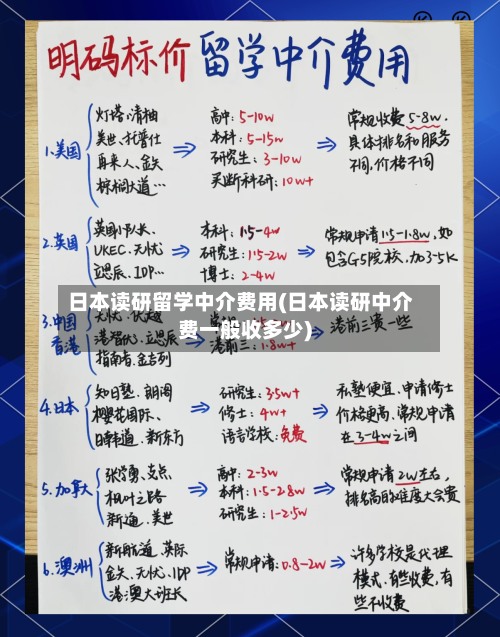 明码标价 留学中介费用
1.美国
灯塔、清柚
美世、托普仕
再来人、金矢
棕榈大道…
高中: 5-10w
本科: 5-15w
研究生: 3-10w
买断科研: 10w+
常规收费5-8w,
具体排名和服务
不同,价格不同
2.英国
英国小队长、
UKEC、无忧
立思辰、IDP…
本科: 1.5-4w
研究生: 1.5-2w
博士: 2-4w
常规申请1.5-1.8w, 如
包含G5院校,加3-5K
日本读研留学中介费用(日本读研中介
费一般收多少)
3.中国
香港
港智优、立思辰
指南者、金吉列
港前三: 1.8w+
港前三贵一些
4.日本
知日塾、朝阁
樱花国际、
新东方
研究生: 3.5w+
修士: 4w+
语言学校: 免费
私塾便宜、申请修士
价格更高、常规申请
在3-4w之间
5.加拿大
枫叶之路
新通、美世
高中: 2-3w
本科: 1.5-2.8w
研究生: 1-2.5w
常规申请2w左右,
排名高的难度大会贵
6.澳洲
新航道、英际
金矢、无忧、IDP
港澳大班长
常规申请: 0.8-2w
许多学校是代理
模式、有些收费,有
些不收费